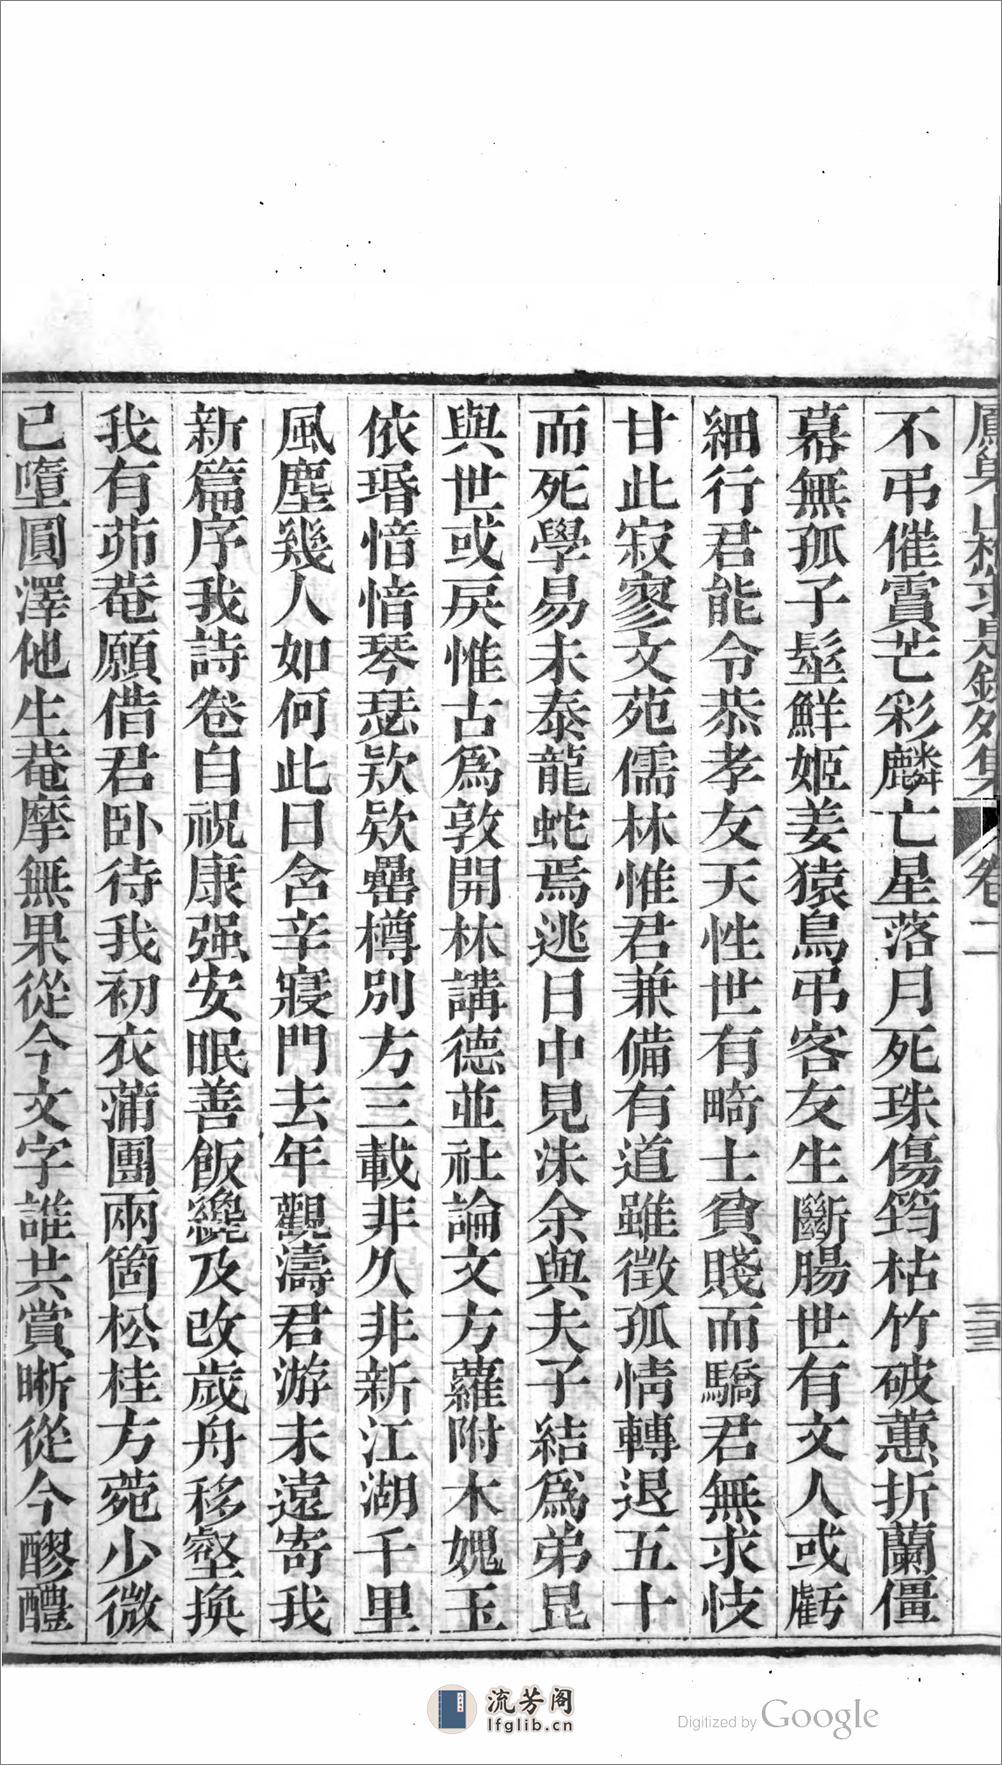 卷二
三三
不弔催霣芒彩麟亡星落月死珠傷筠枯竹破蕙折蘭僵
幕無孤子髽鮮姬姜猿鳥弔客友生斷腸世有文人或虧
細行君能令恭孝友天性世有畸士貧賤而驕君無求忮
甘此寂寥文苑儒林惟君兼備有道雖徵孤情轉退五十
而死學易未泰龍蛇焉逃日中見沬余與夫子結爲弟昆
與世或戾惟古爲敦開林講德並社論文方蘿附木媿玉
依珉愔愔琴瑟欵欵罍樽別方三載非久非新江湖千里
風塵幾人如何此日含辛寢門去年觀濤君游未遠寄我
新篇序我詩卷白祝康强安眠善飯纔及改歲舟移壑換
我有茆菴願借君卧待我初衣蒲團兩箇松桂方菀少微
已墮圓澤他生菴摩無果從今文字誰共賞晰從今醪醴
流芳阁
lfglib.cn
Digitized by Google